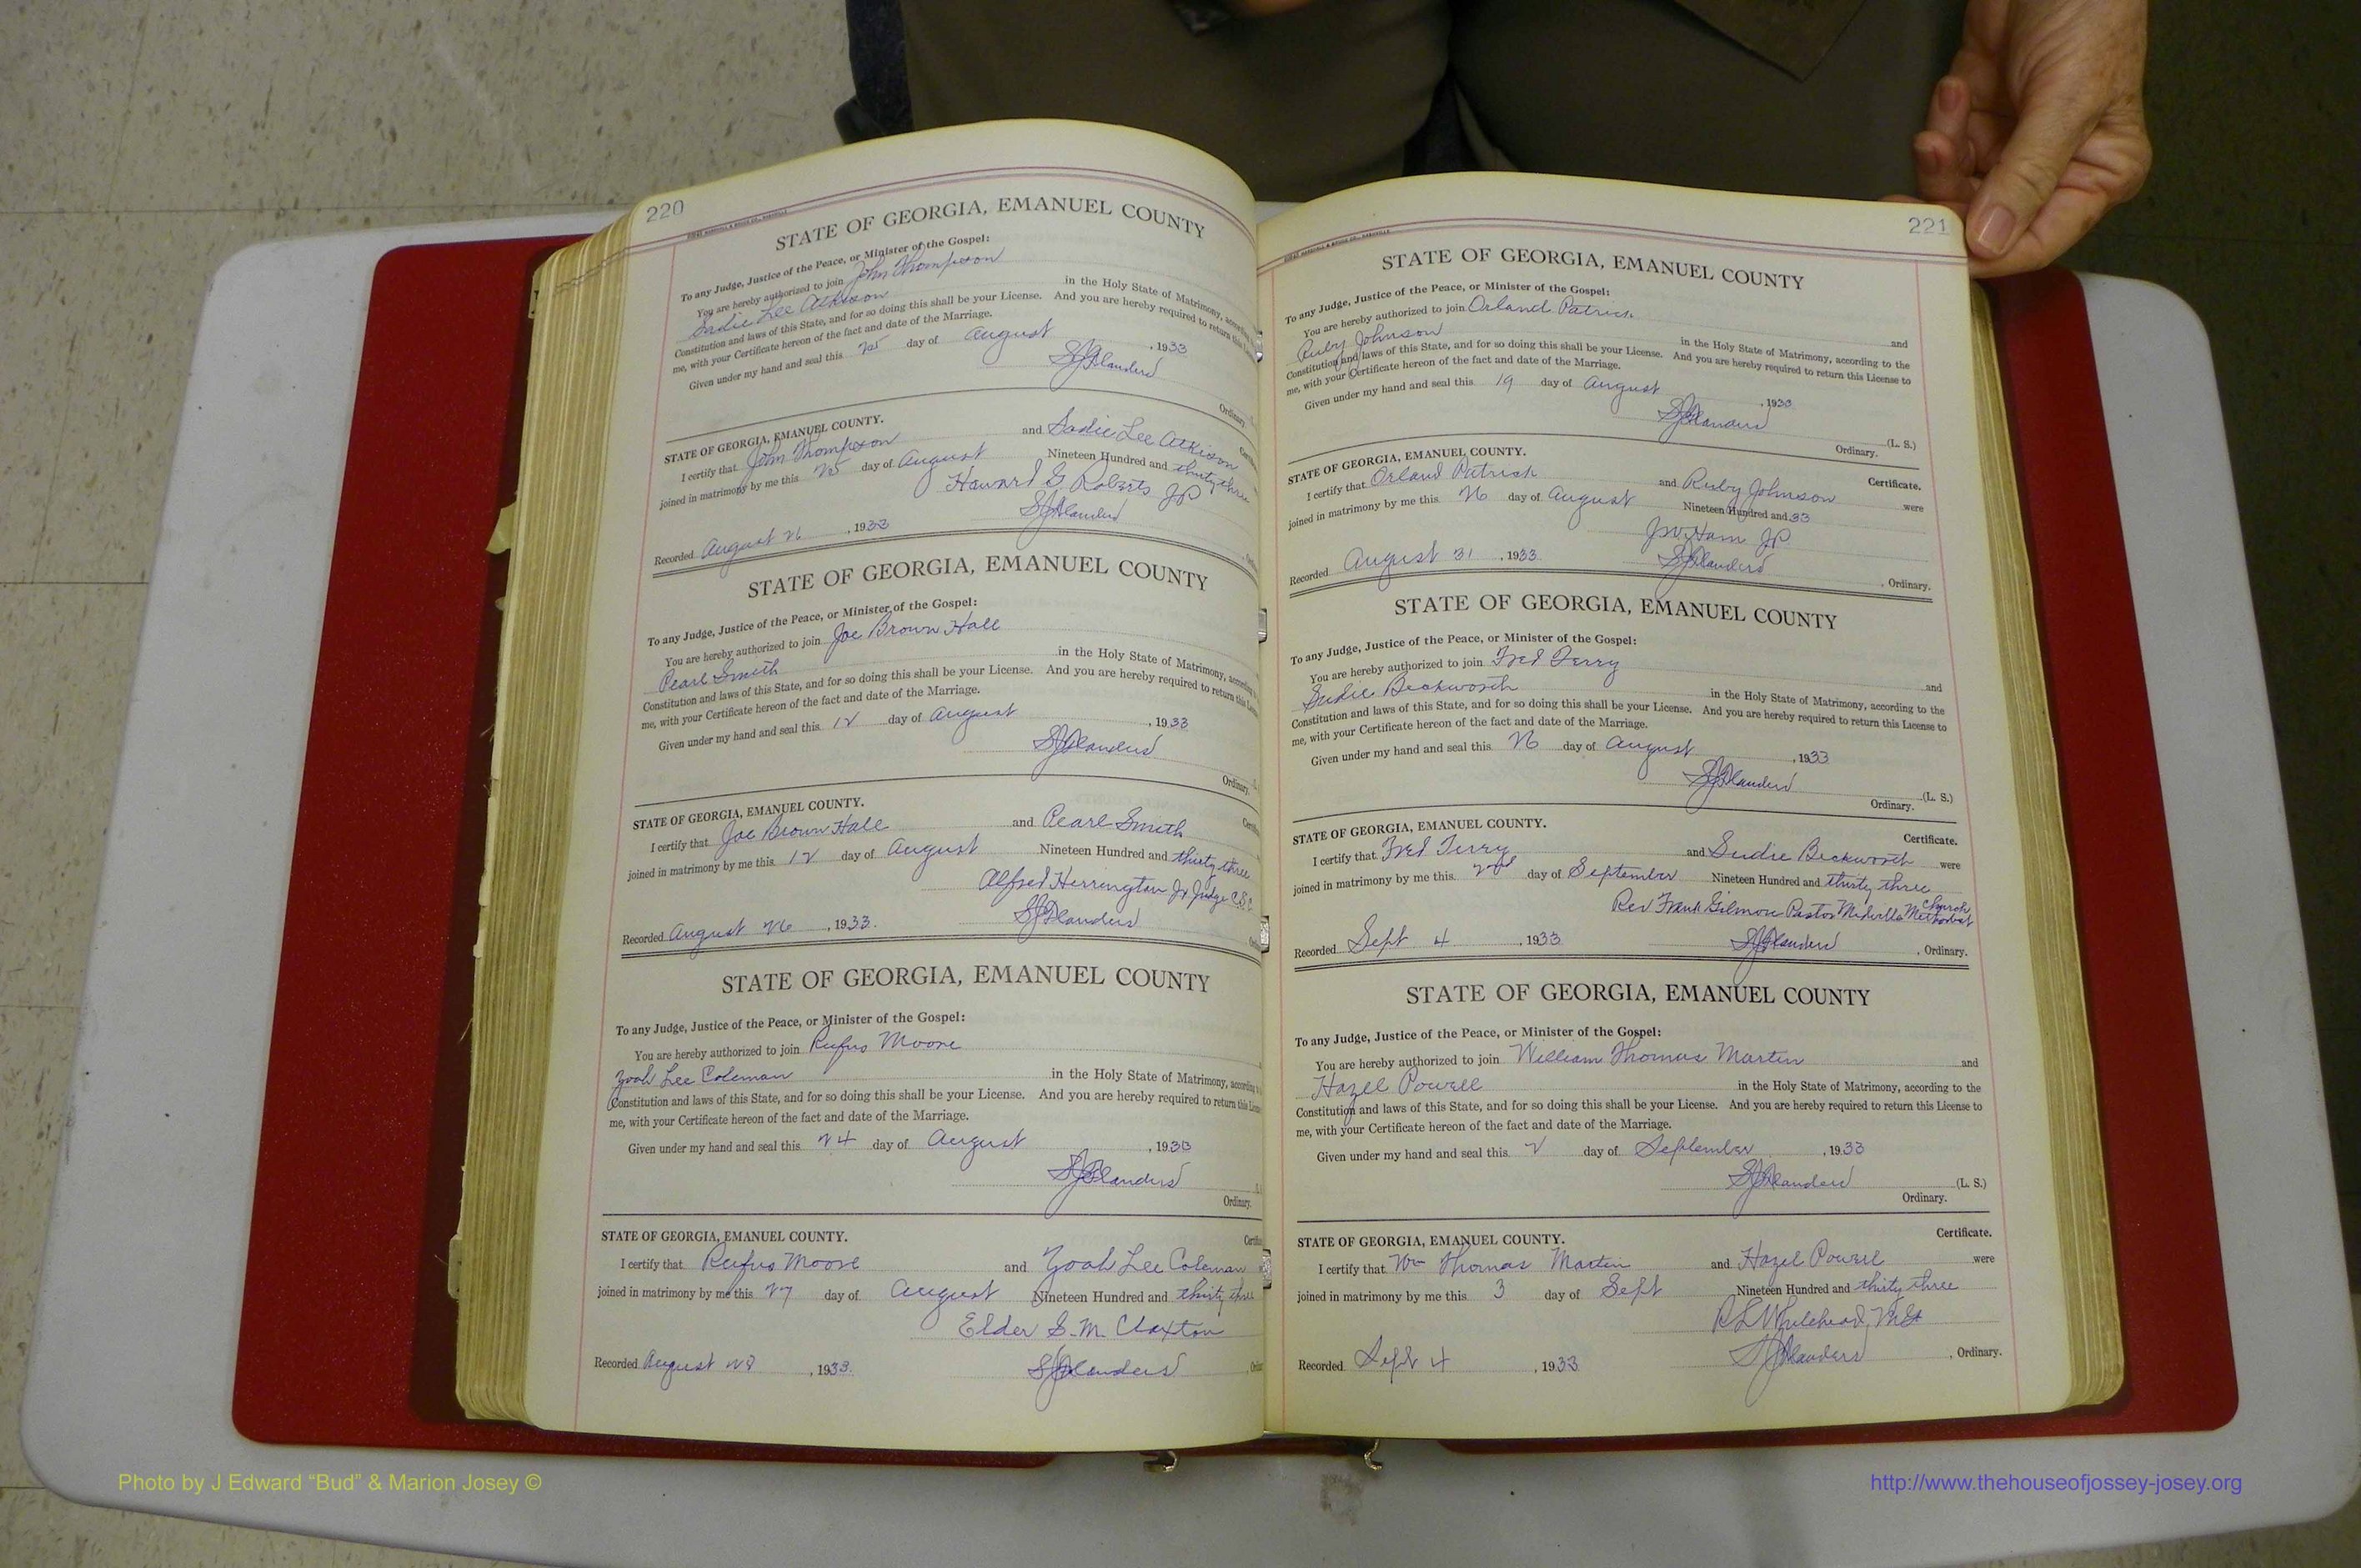 220
STATE OF GEORGIA, EMANUEL COUNTY
To any Judge, Justice of the Peace, or Minister of the Gospel:
You are hereby authorized to join John Thompson
Sadie Lee Atkison in the Holy State of Matrimony,
Constitution and laws of this State, and for so doing this shall be your License. And you are hereby required to return this
me, with your Certificate hereon of the fact and date of the Marriage.
Given under my hand and seal this 25 day of August , 1933
S J Flanders
Ordinary.
STATE OF GEORGIA, EMANUEL COUNTY.
I certify that John Thompson and Sadie Lee Atkison
joined in matrimony by me this 25 day of August Nineteen Hundred and thirty three
Howard G Roberts JP
Recorded August 26 , 1933 S J Flanders
STATE OF GEORGIA, EMANUEL COUNTY
To any Judge, Justice of the Peace, or Minister of the Gospel:
You are hereby authorized to join Joe Brown Hall
Pearl Smith in the Holy State of Matrimony,
Constitution and laws of this State, and for so doing this shall be your License. And you are hereby required to return this
me, with your Certificate hereon of the fact and date of the Marriage.
Given under my hand and seal this 12 day of August , 1933
S J Flanders
Ordinary.
STATE OF GEORGIA, EMANUEL COUNTY.
I certify that Joe Brown Hall and Pearl Smith
joined in matrimony by me this 12 day of August Nineteen Hundred and thirty three
Alfred Herrington Jr Judge
Recorded August 26 , 1933. S J Flanders
STATE OF GEORGIA, EMANUEL COUNTY
To any Judge, Justice of the Peace, or Minister of the Gospel:
You are hereby authorized to join Rufus Moore
Zoah Lee Coleman in the Holy State of Matrimony,
Constitution and laws of this State, and for so doing this shall be your License. And you are hereby required to return this
me, with your Certificate hereon of the fact and date of the Marriage.
Given under my hand and seal this 24 day of August , 1933
S J Flanders
Ordinary.
STATE OF GEORGIA, EMANUEL COUNTY.
I certify that Rufus Moore and Zoah Lee Coleman
joined in matrimony by me this 27 day of August Nineteen Hundred and thirty three
Elder S. M. Claxton
Recorded August 28 , 1933. S J Flanders
221
STATE OF GEORGIA, EMANUEL COUNTY
To any Judge, Justice of the Peace, or Minister of the Gospel:
You are hereby authorized to join Orland Patrick and
Ruby Johnson in the Holy State of Matrimony, according to the
Constitution and laws of this State, and for so doing this shall be your License. And you are hereby required to return this License to
me, with your Certificate hereon of the fact and date of the Marriage.
Given under my hand and seal this 19 day of August , 1933
S J Flanders (L. S.)
Ordinary.
STATE OF GEORGIA, EMANUEL COUNTY. Certificate.
I certify that Orland Patrick and Ruby Johnson were
joined in matrimony by me this 26 day of August Nineteen Hundred and 33
J W Ham JP
Recorded August 31 , 1933. S J Flanders , Ordinary.
STATE OF GEORGIA, EMANUEL COUNTY
To any Judge, Justice of the Peace, or Minister of the Gospel:
You are hereby authorized to join Fred Terry and
Sudie Beckworth in the Holy State of Matrimony, according to the
Constitution and laws of this State, and for so doing this shall be your License. And you are hereby required to return this License to
me, with your Certificate hereon of the fact and date of the Marriage.
Given under my hand and seal this 26 day of August , 1933
S J Flanders (L. S.)
Ordinary.
STATE OF GEORGIA, EMANUEL COUNTY. Certificate.
I certify that Fred Terry and Sudie Beckworth were
joined in matrimony by me this 2nd day of September Nineteen Hundred and thirty three
Rev Frank Gilmore Pastor Midville Methodist Church
Recorded Sept 4 , 1933 S J Flanders , Ordinary.
STATE OF GEORGIA, EMANUEL COUNTY
To any Judge, Justice of the Peace, or Minister of the Gospel:
You are hereby authorized to join William Thomas Martin and
Hazel Powell in the Holy State of Matrimony, according to the
Constitution and laws of this State, and for so doing this shall be your License. And you are hereby required to return this License to
me, with your Certificate hereon of the fact and date of the Marriage.
Given under my hand and seal this 2 day of September , 1933
S J Flanders (L. S.)
Ordinary.
STATE OF GEORGIA, EMANUEL COUNTY. Certificate.
I certify that Wm Thomas Martin and Hazel Powell were
joined in matrimony by me this 3 day of Sept Nineteen Hundred and thirty three
R L Whitehead, MG
Recorded Sept 4 , 1933 S J Flanders , Ordinary.
Photo by J Edward “Bud” & Marion Josey ©
http://www.thehouseofjossey-josey.org